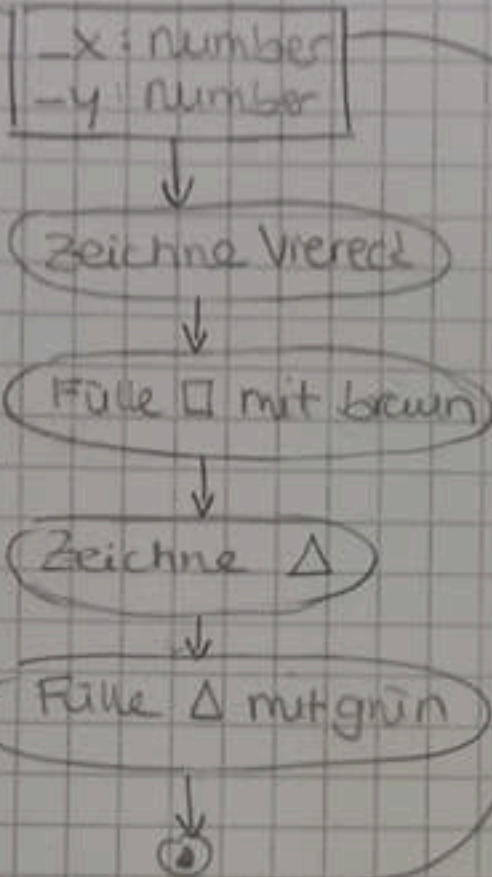 _x : number
_y : number
Zeichne Viereck
Fülle □ mit braun
Zeichne △
Fülle △ mit grün